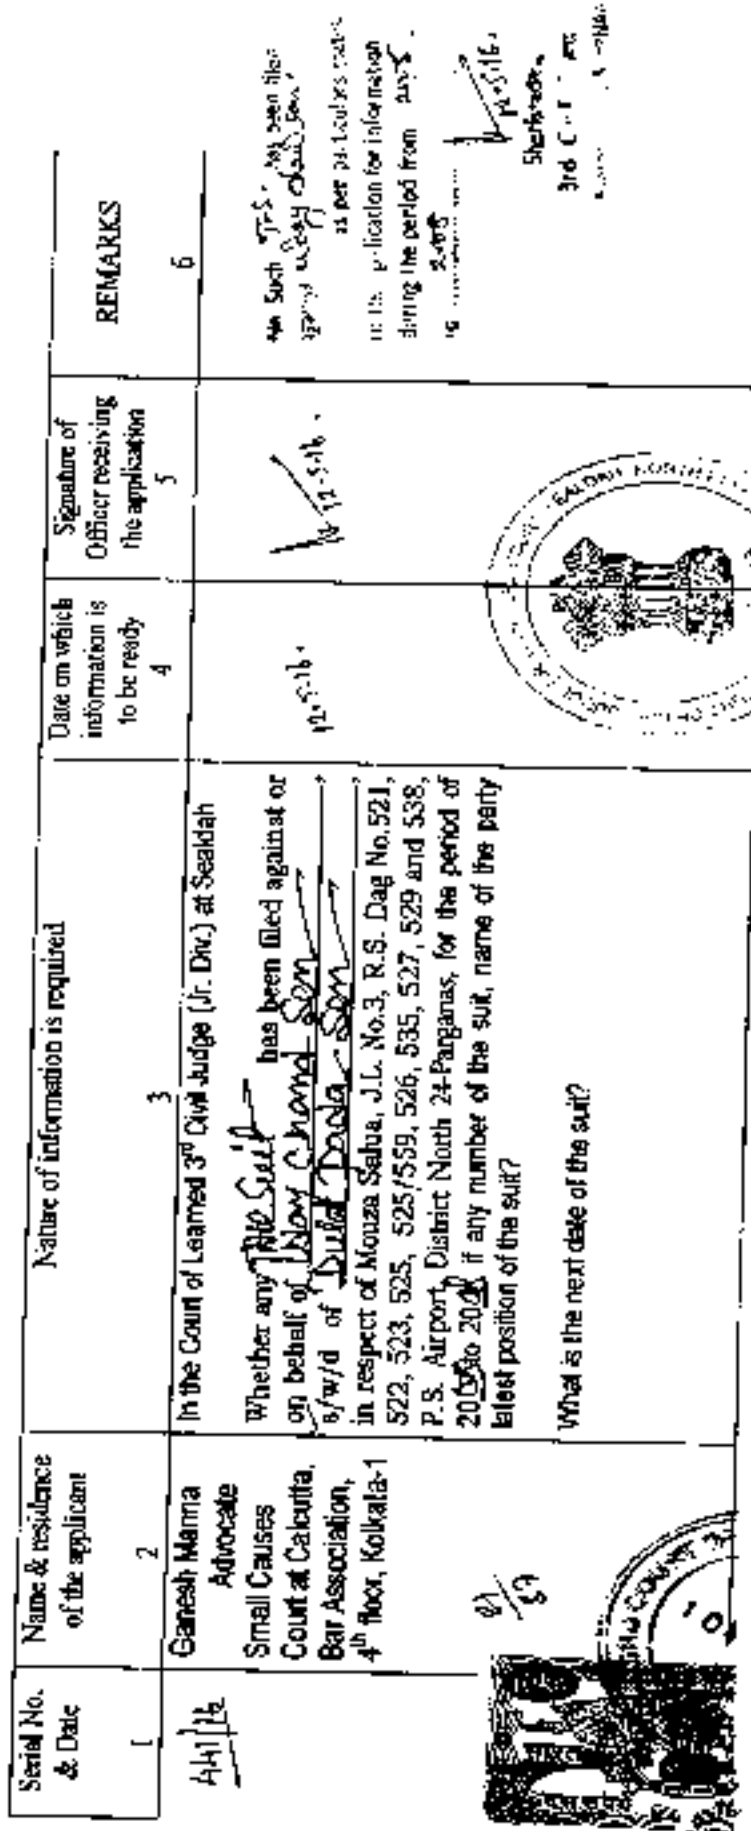 Serial No.
& Date
1
Name & residence
of the applicant
2
Nature of information is required
3
Date on which
information is
to be ready
4
Signature of
Officer receiving
the application
5
REMARKS
6
441/16
Ganesh Manna
Advocate
Small Causes
Court at Calcutta,
Bar Association,
4th floor, Kolkata-1
In the Court of Learned 3rd Civil Judge (Jr. Div.) at Sealdah
Whether any Title Suit has been filed against or
on behalf of Chand Sen
s/w/d of Sen,
in respect of Mouza Salua, J.L. No.3, R.S. Dag No.521,
522, 523, 525, 525/559, 526, 535, 527, 529 and 538,
P.S. Airport, District North 24-Parganas, for the period of
to if any number of the suit, name of the party
latest position of the suit?
What is the next date of the suit?
12.5.16.
12.5.16.
No Such T.S. has been filed
as per particulars
application for information
during the period from
to
12.5.16.
Sheristadar
3rd